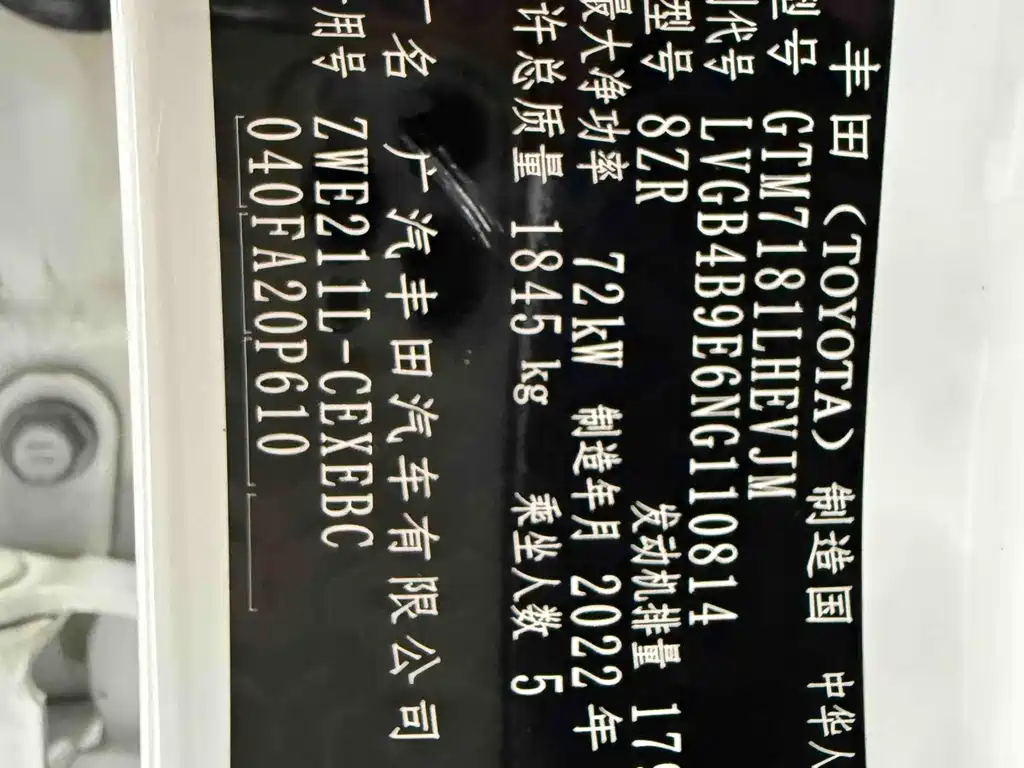 丰田 (TOYOTA) 制造国 中华人
型号 GTM7181LHEVJM
代号 LVGB4B9E6NG110814
型号 8ZR 发动机排量 179
最大净功率 72kW 制造年月 2022 年
许总质量 1845 kg 乘坐人数 5
厂名 广汽丰田汽车有限公司
用号 ZWE211L-CEXEBC
040FA20P610